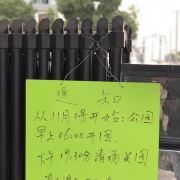 通 知
从11月1号开始：公园
早上06:00开园
下午17:30分清场关园